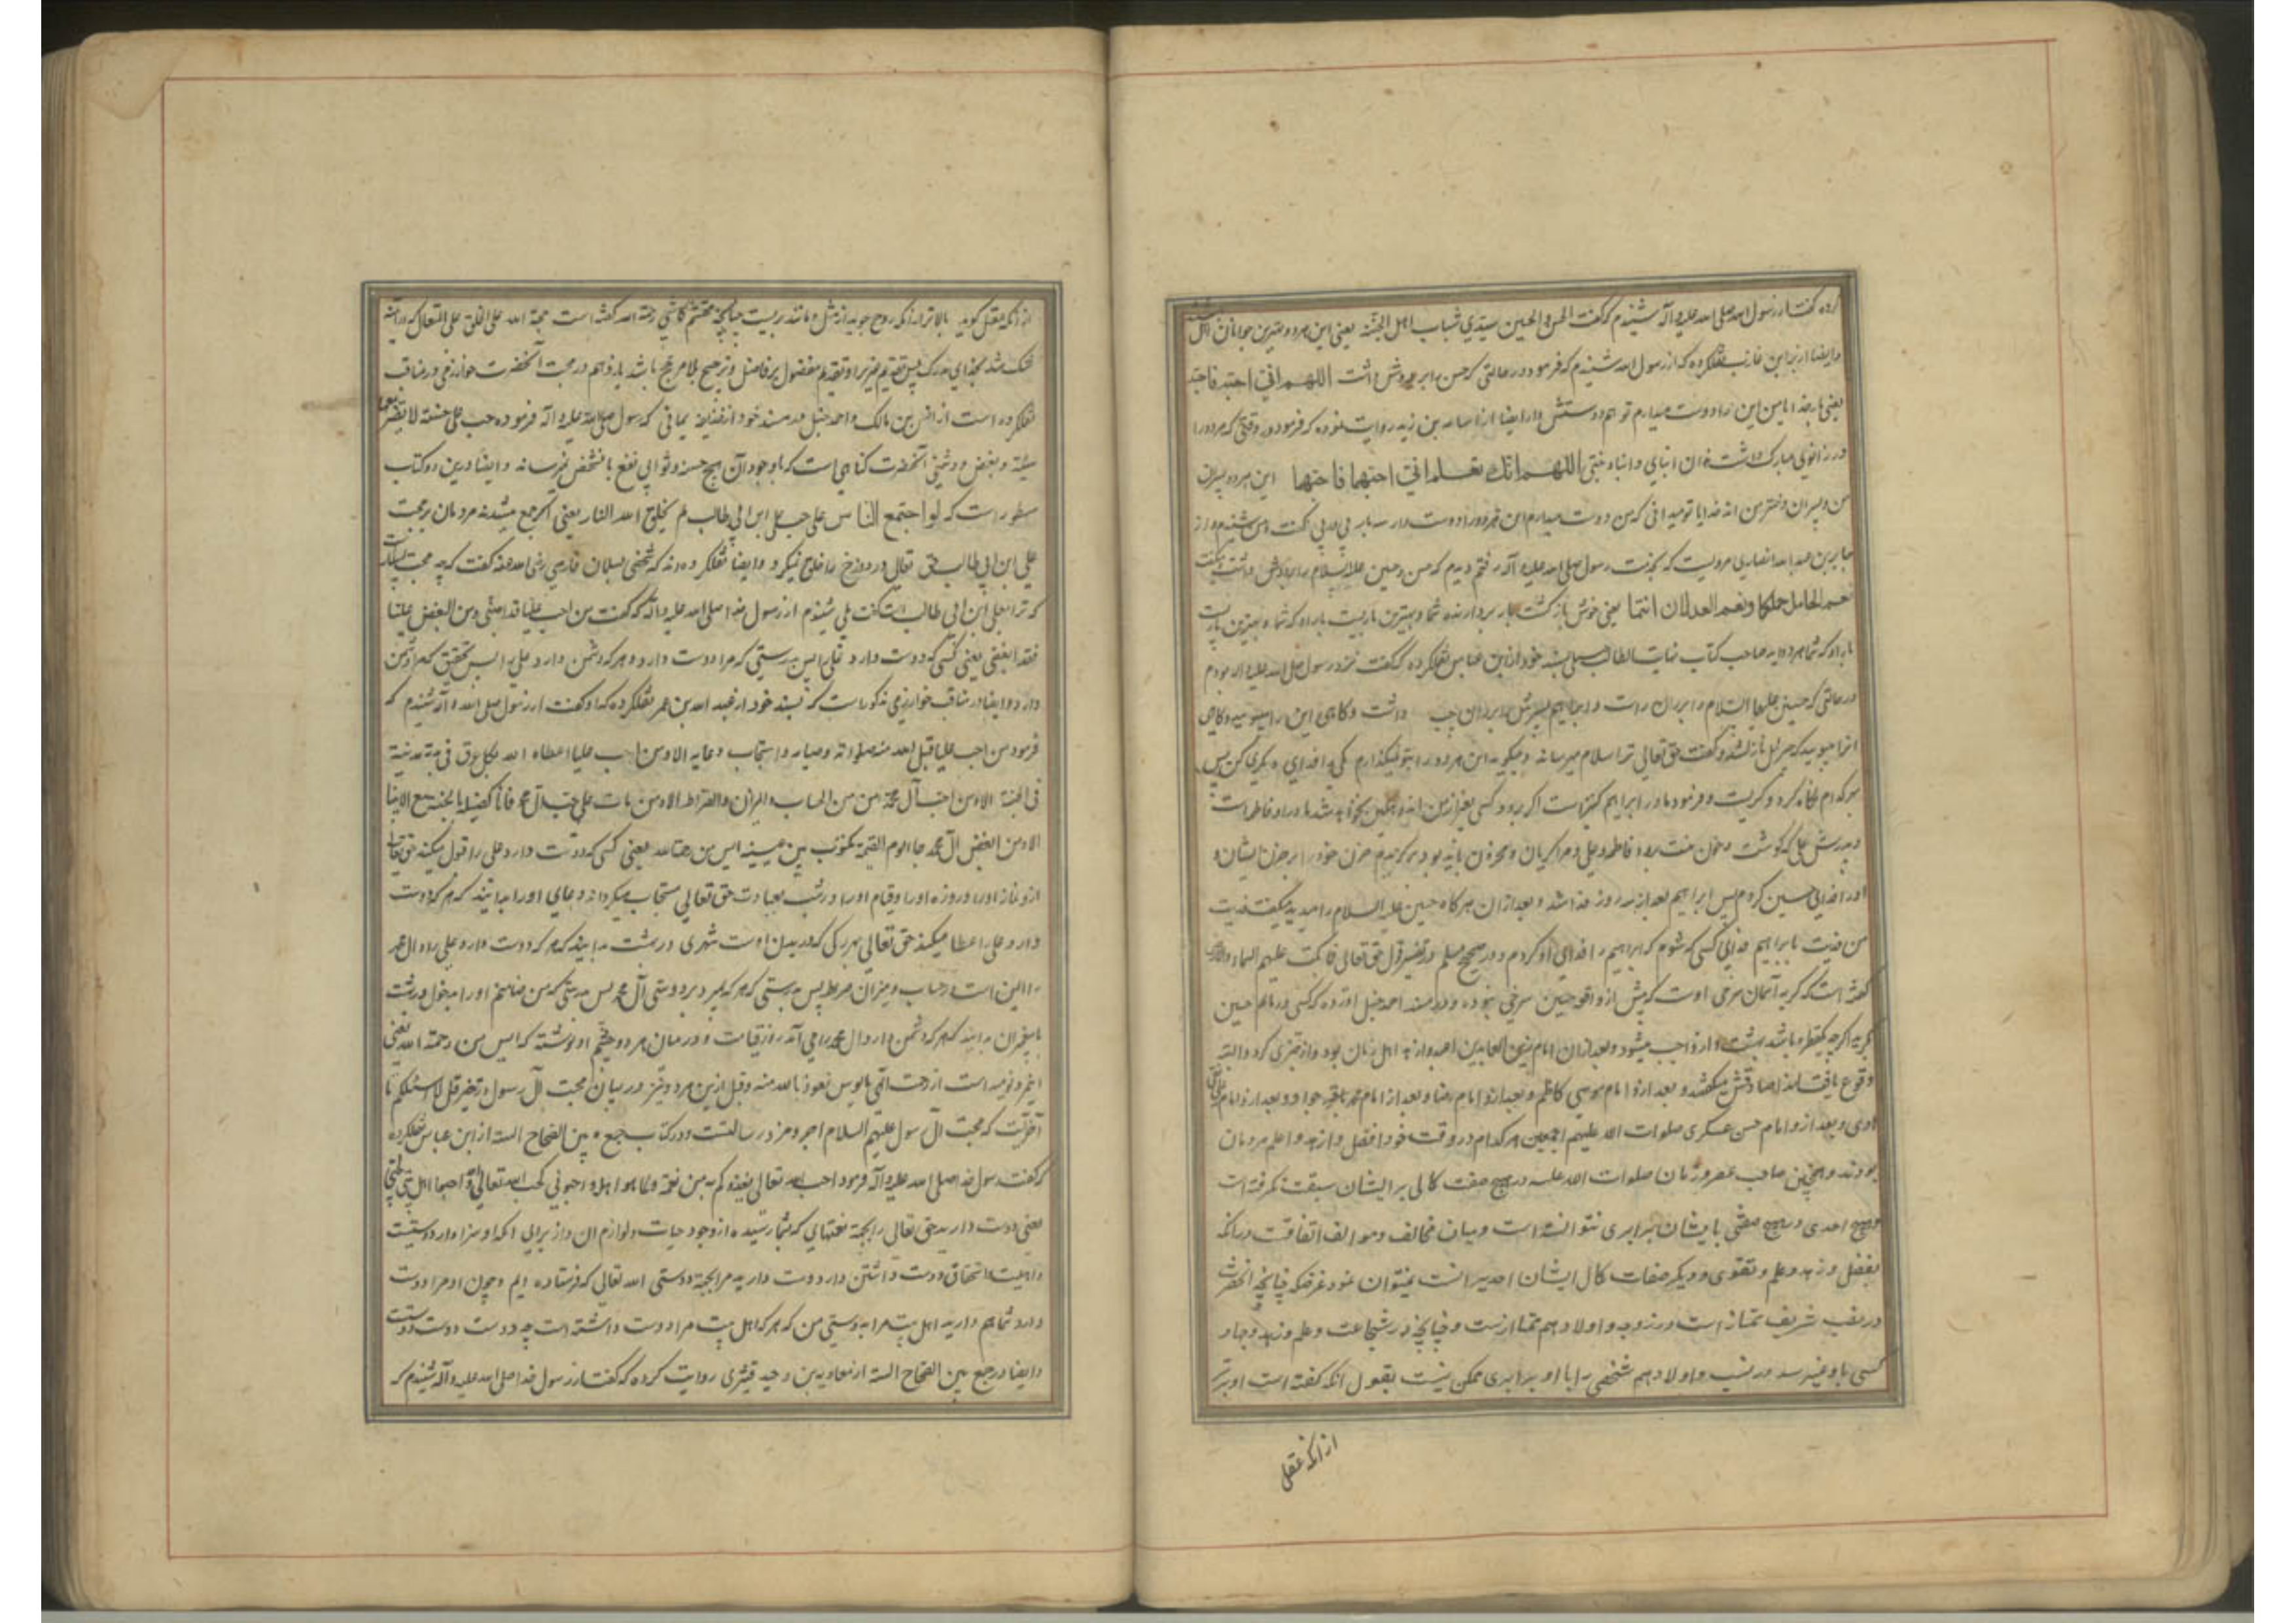 کرده گفت از رسول الله صلی الله علیه و آله شنیدم که گفت الحسن و الحسین سیدی شباب اهل الجنة یعنی این هر دو بهترین جوانان اهل
و ایضا از براین عازب نقلکرده که از رسول الله شنیدم که فرمود در حالتی که حسن را بر دوش داشت اللهم انی احبه فاحبه
یعنی بار خدایا من این را دوست میدارم تو هم دوستش دار ایضا از اسامه بن زید روایت نموده که فرمود در وقتی که هر دو را
در زانوی مبارک داشت هذان ابنای و ابنا بنتی اللهم انک تعلم انی احبهما فاحبهما این هر دو پسران
من و پسران دختر من اند خدایا تو میدانی که من دوست میدارم این هر دو را دوست دار سه بار پی در پی گفت شنیدم و از
جابر بن عبد الله انصاری مرویست که بخدمت رسول صلی الله علیه و آله رفتم دیدم که حسن و حسین علیهما السلام را بر دوش داشت میگفت
نعم الحامل حملکما و نعم العدلان انتما یعنی خوش باز گشت بار بردارنده شما و بهترین باریست بار او که شما و بهترین باریست
بار او که شما هر دو اید صاحب کتاب نهایت الطالب بسند خود از ابن عباس نقلکرده که گفت نزد رسول صلی الله علیه و اله بودم
در حالتی که حسین علیهما السلام را بر ران راست و ابراهیم پسرش را بر ران چپ داشت و گاهی این را میبوسید و گاهی
انرا میبوسید که جبرئیل نازل شد و گفت حق تعالی ترا سلام میرساند و میگوید این هر دو را بتو نمیگذارم یکی را فدای دیگری کن پس
بهر کدام نگاه کرد و گریست و فرمود مادر ابراهیم کنیز است اگر بمیرد کسی بغیر از من اندوهگین نخواهد شد مادر او فاطمه است
و پدرش علی که گوشت و خون منست و فاطمه و علی و مرا گریان و محزون باید بود برگزیدم حزن خود را بر حزن ایشان و
او را فدای حسین کردم پس ابراهیم بعد از سه روز فدا شد و بعد از ان هر گاه حسین علیه السلام را میدید میگفت فدیت
من فدیت بابراهیم فدای کسی که شوم که ابراهیم را فدای او کردم و در صحیح مسلم در تفسیر قول حق تعالی فما بکت علیهم السماء و الارض
گفته است که گریه آسمان سرخی اوست که پیش از واقعه حسین سرخی نبوده و در مسند احمد حنبل آورده که کسی در ماتم حسین
گریه اگر چه یکقطره باشد بهشت او را واجب میشود و بعد از ان امام زین العابدین اعبد و ازهد اهل زمان بود و از خبری کرد و البته
وقوع یافت لهذا صادقش میگفتند و بعد از و امام موسی کاظم و بعد از و امام رضا و بعد از امام محمد باقر جواد و بعد از و امام علی نقی
هادی و بعد از و امام حسن عسکری صلوات الله علیهم اجمعین هر کدام در وقت خود افضل و ازهد و اعلم مردمان
بودند و همچنین صاحب عصر و زمان صلوات الله علیه در هیچ صفت کمالی بر ایشان سبقت نگرفته است
و هیچ احدی در هیچ صفتی با یشان برابری نتوانسته است و میان مخالف و موالف اتفاقست در انکه
بفضل و زهد و علم و تقوی و دیگر صفات کمال ایشان احدیرا نسبت نمیتوان نمود غرضکه چنانچه آنحضرت
در نسب شریف ممتاز است در زوجه و اولاد هم ممتاز است و چنانچه در شجاعت و علم و زهد و جهاد
کسی باو نمیرسد در نسب و اولاد هم شخصی را با او برابری ممکن نیست بقول انکه گفته است او برتر
از انکه عقل
از انکه عقل گوید بالاتر از انکه روح جوید از مثل و مانند بریست چنانچه محتشم کاشی رحمة الله گفته است حجة الله علی الخلق علی المتعال که در آینه
شک شد بخدای بزرگ پس تقدیم غیر بر او تقدیم مفضول بر فاضل و ترجیح بلا مرجح باشد یازدهم در محبت آنحضرت خوارزمی در مناقب
نقلکرده است از انس بن مالک و احمد حنبل در مسند خود از حذیفه یمانی که رسول صلی الله علیه و اله فرموده حب علی حسنة لا یضر معها
سیئة و بغض و دشمنی آنحضرت گناهی است که با وجود آن هیچ حسنه و ثوابی نفع بانشخص نمیرساند و ایضا درین دو کتاب
مسطور است که لو اجتمع الناس علی حب علی ابن ابی طالب لم یخلق الله النار یعنی اگر جمع میشدند مردمان بر محبت
علی ابن ابی طالب حق تعالی در دوزخ را خلق نمیکرد و ایضا نقلکرده اند که شخصی بسلمان فارسی رضی الله عنه گفت که چه محبت بسیار است
که ترا بعلی ابن ابی طالب است گفت بلی شنیدم از رسول خدا صلی الله علیه و اله که گفت من احب علیا فقد احبنی و من ابغض علیا
فقد ابغضنی یعنی کسی که دوست دارد علی را پس بدرستی که مرا دوست دارد و هر که دشمن دارد علی را پس بتحقیق که مرا دشمن
دارد و ایضا در مناقب خوارزمی مذکور است که بسند خود از عبد الله بن عمر نقلکرده که او گفت از رسول صلی الله و آله شنیدم که
فرمود من احب علیا قبل الله منه صلواته و صیامه و استجاب دعایه الا و من احب علیا اعطاه الله بکل عرق فی بدنه مدینة
فی الجنة الا و من احب آل محمد امن من الحساب و المیزان و الصراط الا و من مات علی حب آل محمد فانا کفیله بالجنة مع الانبیا
الا و من ابغض آل محمد جاء یوم القیمة مکتوب بین عینیه ایس من رحمة الله یعنی کسی که دوست دارد علی را قبول میکند حق تعالی
ازو نماز او را و روزه او را و قیام او را در شب بعبادت حق تعالی و مستجاب میگرداند دعای او را بدانید که هر که دوست
دارد علی را عطا میکند حق تعالی بهر رگی که در بدن اوست شهری در بهشت بدانید که هر که دوست دارد علی را و ال محمد
را ایمن است از حساب و میزان و صراط پس بدرستی که هر که بمیرد بر دوستی آل محمد پس بدرستی که من ضامنم او را بدخول در بهشت
با پیغمبران بدانید که هر که دشمن دارد ال محمد را می آید روز قیامت و در میان هر دو چشم او نوشته که ایس من رحمة الله یعنی
این نومید است از رحمت الهی مایوس نعوذ بالله منه و قبل ازین هر دو نیز در بیان محبت آل رسول در تفسیر قل لا اسئلکم تا
آخر آیت که محبت آل رسول علیهم السلام اجر و مزد رسالتست و در کتاب جمع بین الصحاح السته از ابن عباس نقلکرده
که گفت رسول خدا صلی الله علیه و آله فرمود احب الله تعالی لما یغذوکم به من نعمة و لما هو اهله و احبونی لحب الله تعالی و احبوا اهل بیتی لحبی
یعنی دوست دارید حق تعالی را بجهة نعمتهای که بشما رسیده از وجود حیات و لوازم ان و از برای انکه او سزاوار دوستیست
و اهلیت و استحقاق دوست داشتن دارد و دوست دارید مرا بجهة دوستی الله تعالی که فرستاده ایم و چون او مرا دوست
دارد شما هم دارید اهل بیت مرا بدوستی من که هر که اهل بیت مرا دوست داشته است چه دوست دوست دوست
و ایضا در جمع بین الصحاح السته از معاویه بن وحید قشیری روایت کرده که گفت از رسول خدا صلی الله علیه و آله شنیدم که